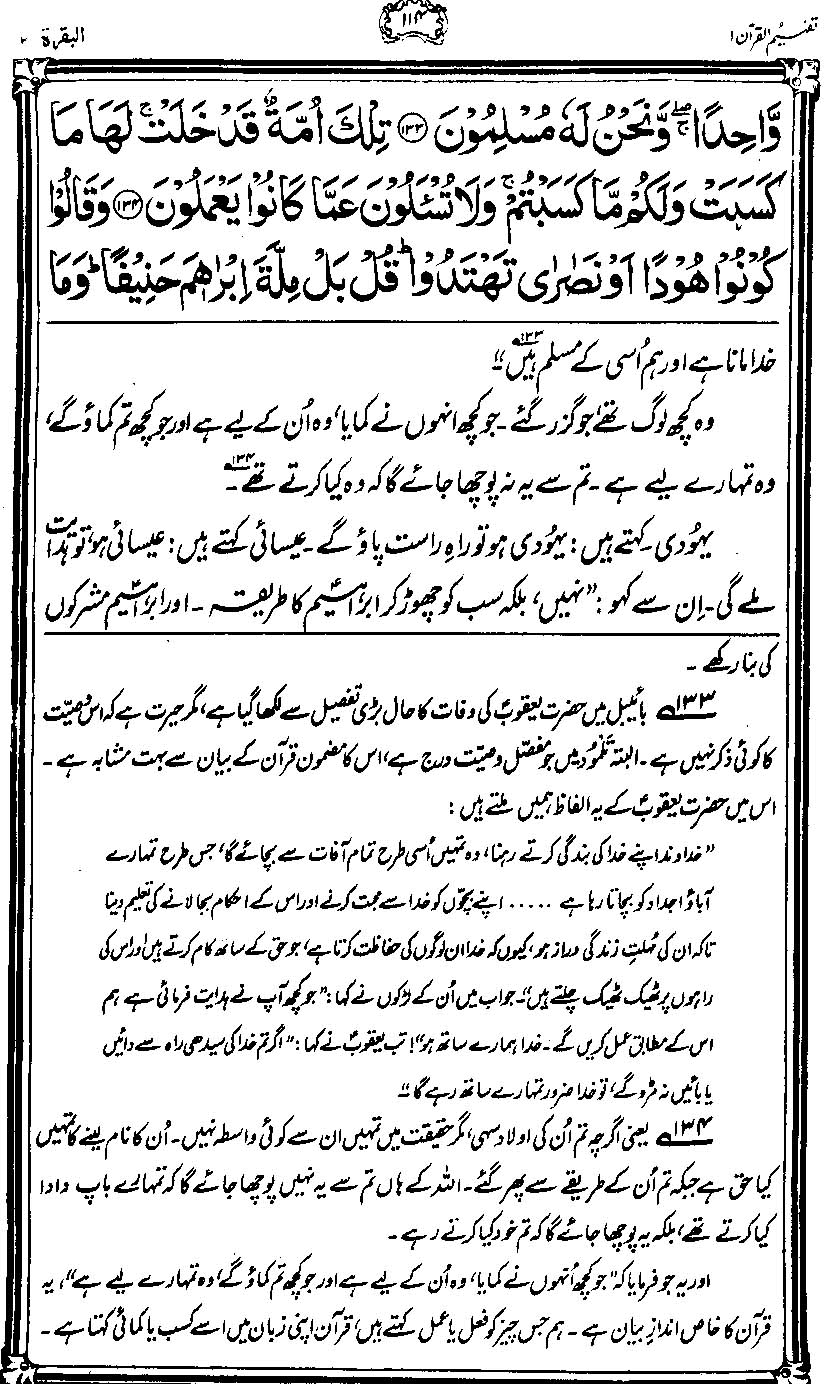 تفہیم القرآن ۱
۱۱۴
البقرۃ ۲
وَّاحِدًا ۖۚ وَّنَحْنُ لَهٗ مُسْلِمُوْنَ ﴿۱۳۳﴾ تِلْكَ اُمَّةٌ قَدْ خَلَتْ ۚ لَهَا مَا
كَسَبَتْ وَلَكُمْ مَّا كَسَبْتُمْ ۚ وَلَا تُسْـَٔلُوْنَ عَمَّا كَانُوْا يَعْمَلُوْنَ ﴿۱۳۴﴾ وَقَالُوْا
كُوْنُوْا هُوْدًا اَوْ نَصٰرٰى تَهْتَدُوْا ؕ قُلْ بَلْ مِلَّةَ اِبْرٰهٖمَ حَنِيْفًا ؕ وَمَا
خدا مانا ہے اور ہم اُسی کے مسلم ہیں ۱۳۳؎“
وہ کچھ لوگ تھے، جو گزر گئے۔ جو کچھ انہوں نے کمایا، وہ اُن کے لیے ہے اور جو کچھ تم کماؤ گے،
وہ تمہارے لیے ہے۔ تم سے یہ نہ پوچھا جائے گا کہ وہ کیا کرتے تھے ۱۳۴؎۔
یہُودی کہتے ہیں: یہُودی ہو تو راہِ راست پاؤ گے۔ عیسائی کہتے ہیں: عیسائی ہو، تو ہدایت
ملے گی۔ اِن سے کہو: ”نہیں، بلکہ سب کو چھوڑ کر ابراہیمؑ کا طریقہ۔ اور ابراہیمؑ مشرکوں
کی بنا رکھے۔
۱۳۳؎ بائیبل میں حضرت یعقوبؑ کی وفات کا حال بڑی تفصیل سے لکھا گیا ہے، مگر حیرت ہے کہ اس وصیّت
کا کوئی ذکر نہیں ہے۔ البتہ تَلْمُود میں جو مفصّل وصیّت درج ہے، اس کا مضمون قرآن کے بیان سے بہت مشابہ ہے۔
اس میں حضرت یعقوبؑ کے یہ الفاظ ہمیں ملتے ہیں:
”خداوند اپنے خدا کی بندگی کرتے رہنا، وہ تمہیں اُسی طرح تمام آفات سے بچائے گا، جس طرح تمہارے
آباؤ اجداد کو بچاتا رہا ہے ..... اپنے بچّوں کو خدا سے محبت کرنے اور اس کے احکام بجا لانے کی تعلیم دینا
تاکہ ان کی مُہلتِ زندگی دراز ہو، کیوں کہ خدا ان لوگوں کی حفاظت کرتا ہے، جو حق کے ساتھ کام کرتے ہیں اور اس کی
راہوں پر ٹھیک ٹھیک چلتے ہیں“۔ جواب میں اُن کے لڑکوں نے کہا: ”جو کچھ آپ نے ہدایت فرمائی ہے ہم
اس کے مطابق عمل کریں گے۔ خدا ہمارے ساتھ ہو“! تب یعقوبؑ نے کہا: ”اگر تم خدا کی سیدھی راہ سے دائیں
یا بائیں نہ مڑو گے، تو خدا ضرور تمہارے ساتھ رہے گا“۔
۱۳۴؎ یعنی اگرچہ تم اُن کی اولاد سہی، مگر حقیقت میں تمہیں ان سے کوئی واسطہ نہیں۔ اُن کا نام لینے کا تمہیں
کیا حق ہے جبکہ تم اُن کے طریقے سے پھر گئے۔ اللہ کے ہاں تم سے یہ نہیں پوچھا جائے گا کہ تمہارے باپ دادا
کیا کرتے تھے، بلکہ یہ پوچھا جائے گا کہ تم خود کیا کرتے رہے۔
اور یہ جو فرمایا کہ ”جو کچھ اُنہوں نے کمایا، وہ اُن کے لیے ہے اور جو کچھ تم کماؤ گے، وہ تمہارے لیے ہے“، یہ
قرآن کا خاص اندازِ بیان ہے۔ ہم جس چیز کو فعل یا عمل کہتے ہیں، قرآن اپنی زبان میں اسے کسب یا کمائی کہتا ہے۔